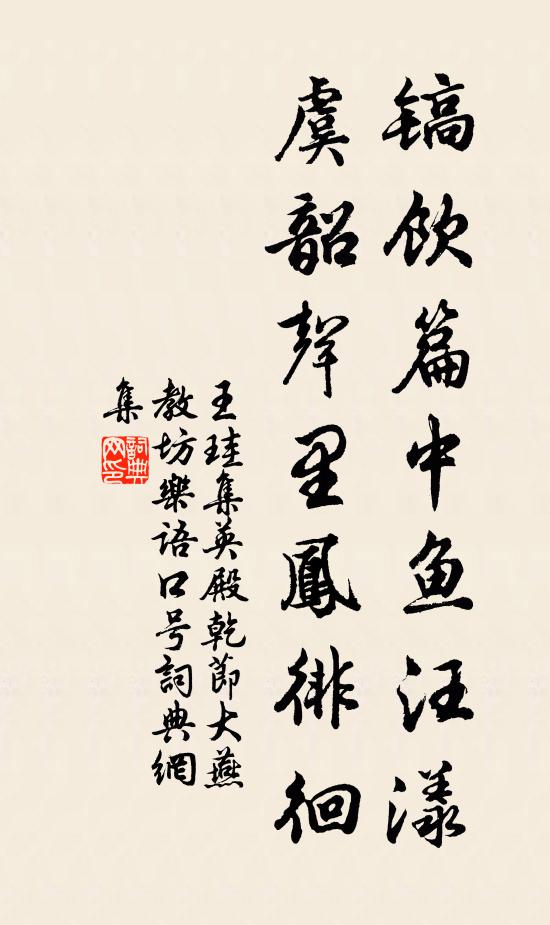 镐饮篇中鱼汪漾
虞韶聲里鳳徘徊
王珪集英殿乾節大燕
教坊樂語口号詞典網
集
詞典
网印